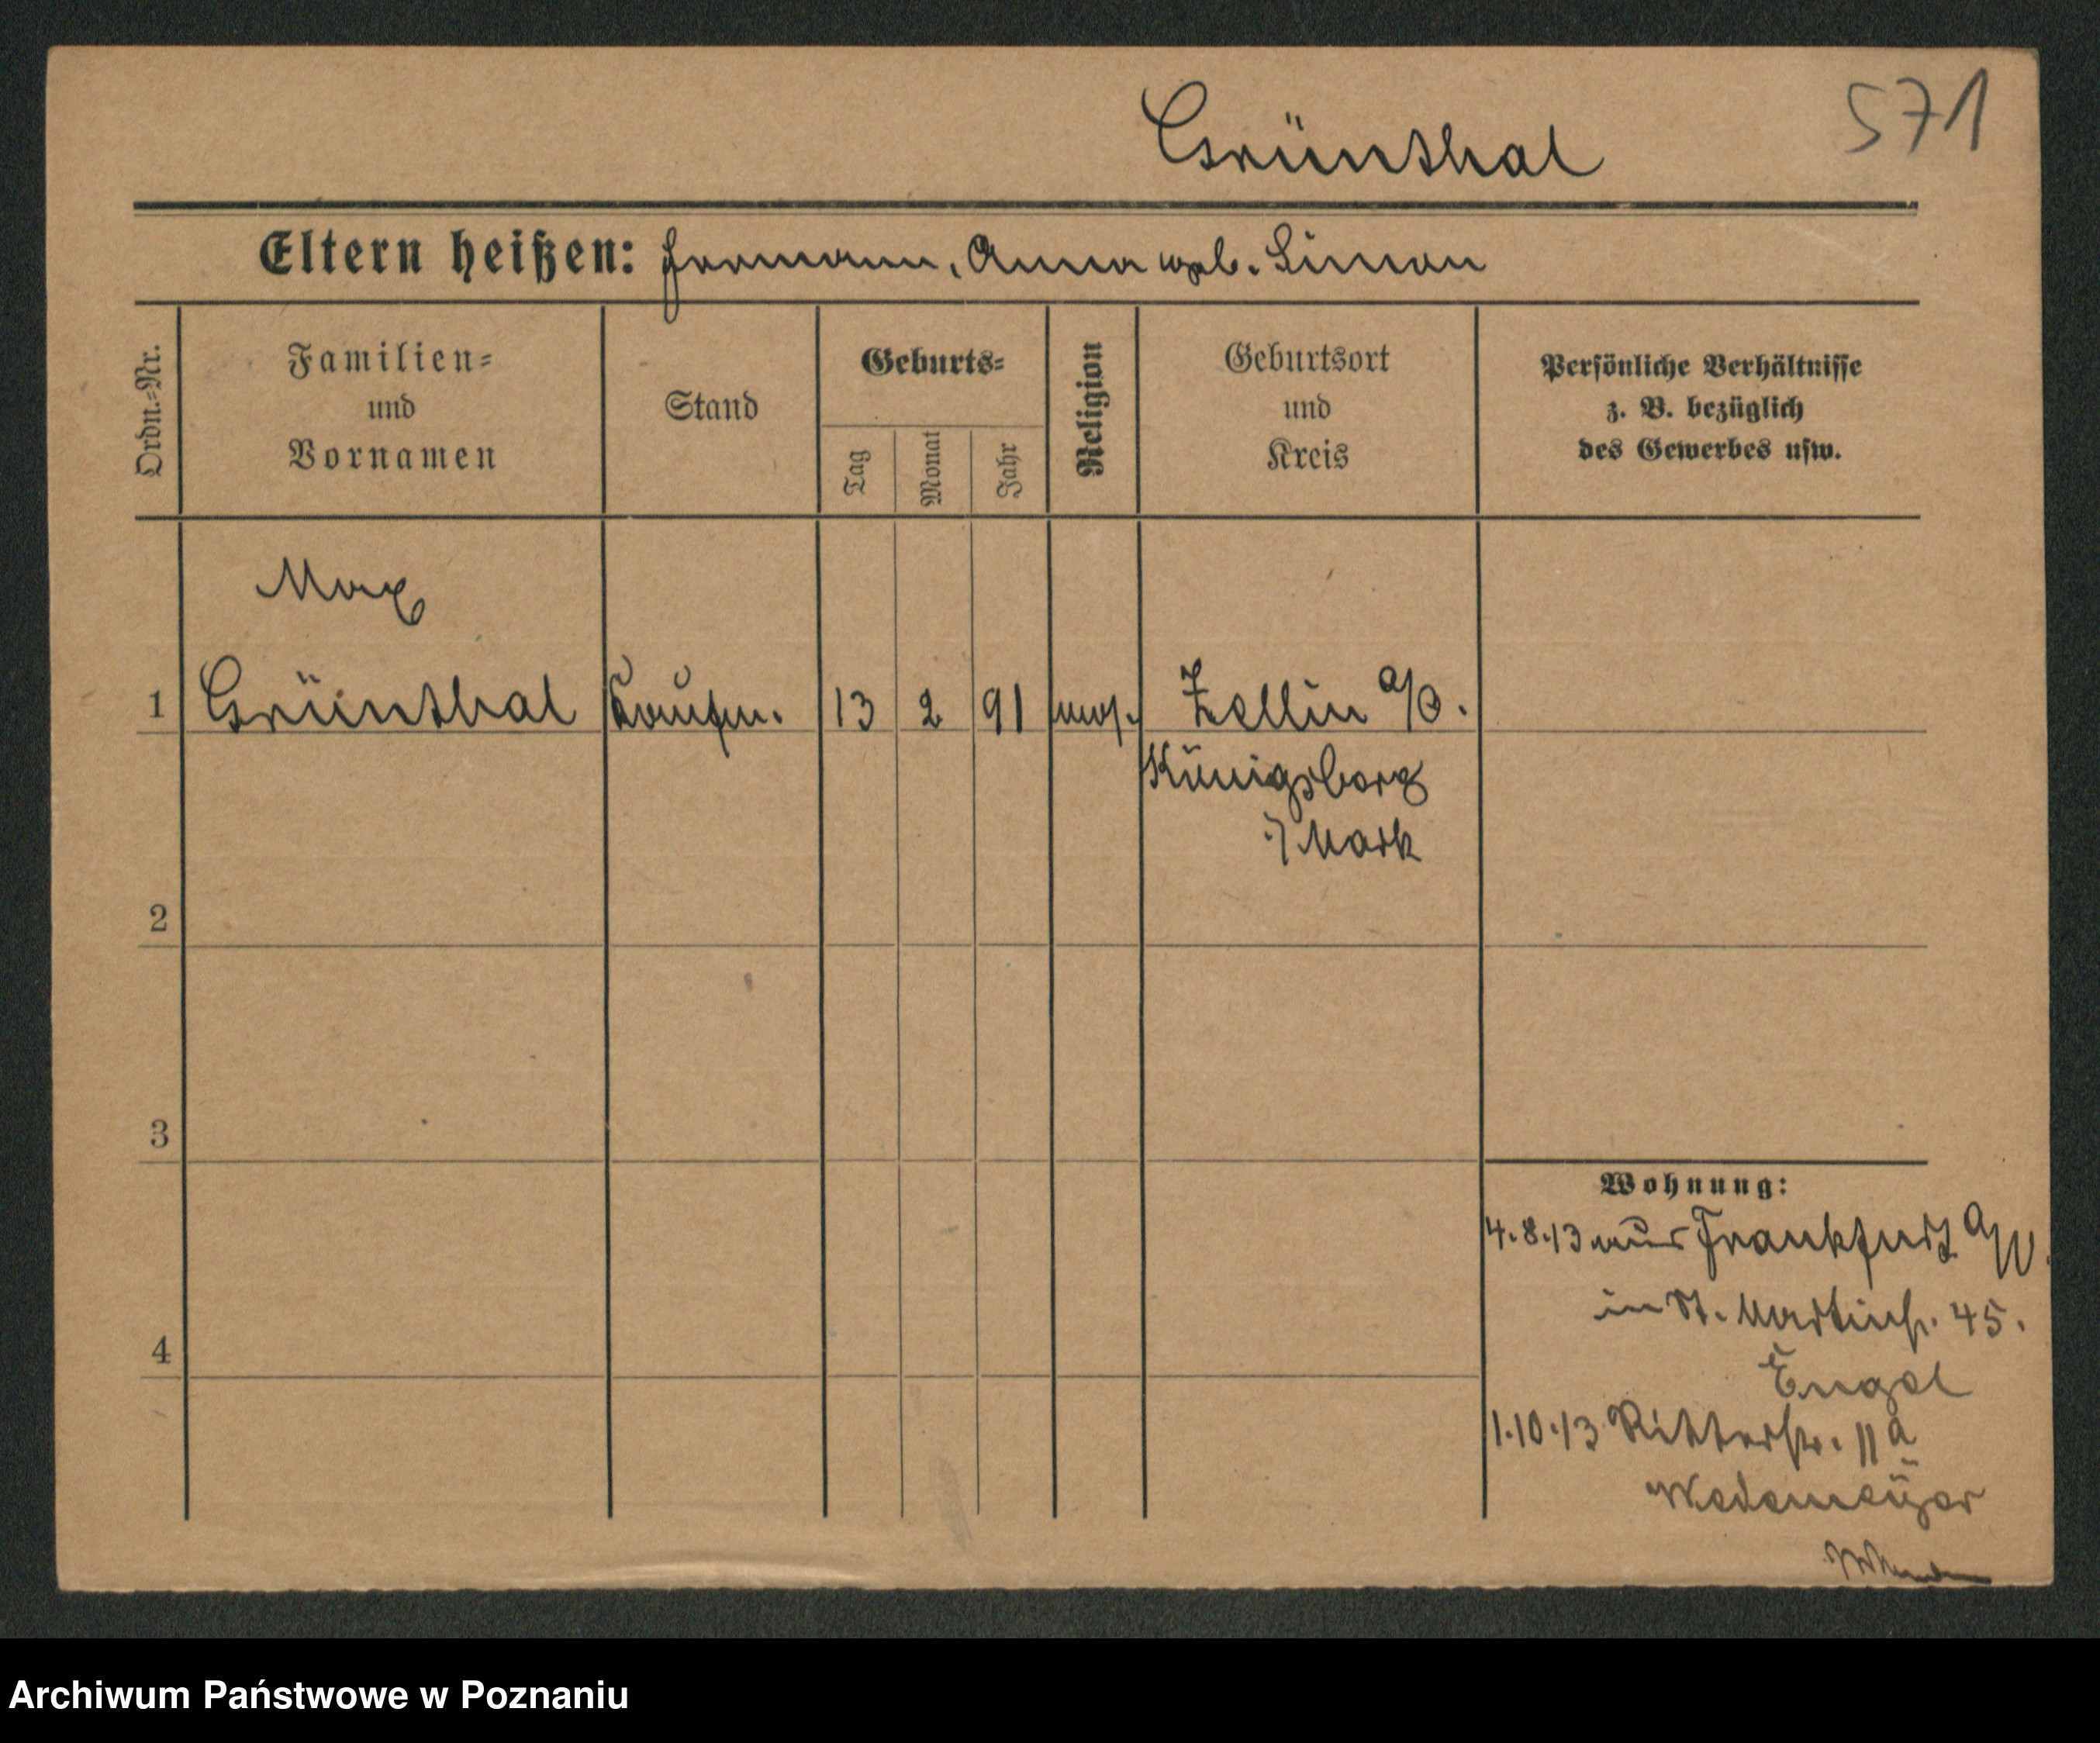 571
Grünthal
Eltern heißen: Hermann, Anna geb. Simon
Ordn.-Nr.
Familien-
und
Vornamen
Stand
Geburts-
Tag
Monat
Jahr
Religion
Geburtsort
und
Kreis
Persönliche Verhältnisse
z. B. bezüglich
des Gewerbes usw.
Max
1 Grünthal Kaufm. 13 2 91 mos. Zellin a/O.
Königsberg
i/ Mark
2
3
4
Wohnung:
4.8.13 aus Frankfurt a/O.
in St. Martinstr. 45.
Engel
1.10.13 Ritterstr. 11a
Wedemeÿer
Archiwum Państwowe w Poznaniu